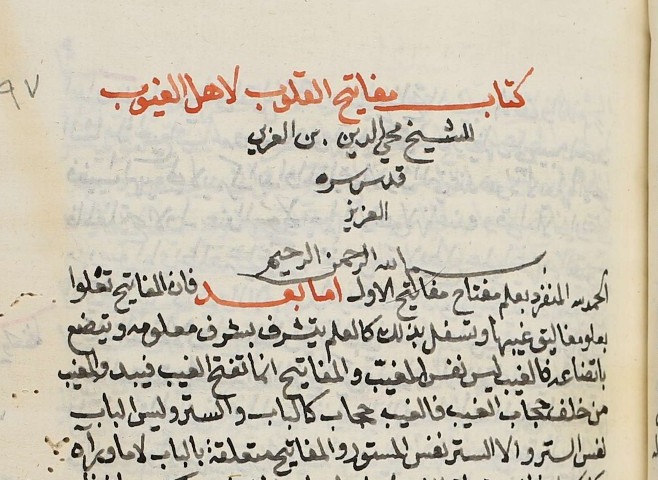 ٩٧
كتاب مفاتيح القلوب لاهل الغيوب
للشيخ محي الدين بن العربي
قدس سره
العزيز
بسم الله الرحمن الرحيم
الحمد لله المنفرد بعلم مفتاح مفاتيح الاول اما بعد فان المفاتيح تعلوا
بعلو مغاليق غيبها وتسفل بذلك كالعلم يتشرف بشرف معلومه ويتضع
باتضاعه فالغيب ليس نفس المغيب والمفاتيح انما تفتح الغيب فيبدو المغيب
من خلف حجاب الغيب فالغيب حجاب كالباب والستر وليس الباب
نفس الستر ولا الستر نفس المستور والمفاتيح متعلقة بالباب لا ما وراه